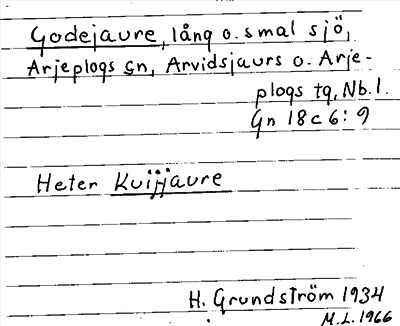 Godejaure, lång o. smal sjö,
Arjeplogs sn, Arvidsjaurs o. Arje-
plogs tg, Nb. l.
Gn 18c6: 9
Heter Kuijjaure
H. Grundström 1934
M.L. 1966